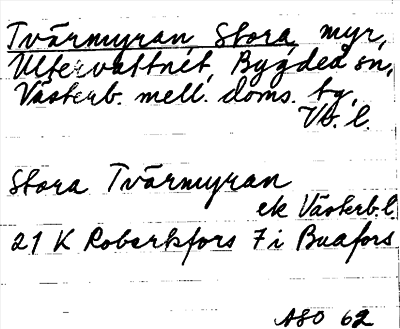 Tvärmyran, Stora, myr,
Ultervattnet, Bygdeå sn,
Västerb. mell. doms. tg,
Vb. l.
Stora Tvärmyran
ek Västerb. l
21 K Robertsfors 7 i Buafors
ASO 62